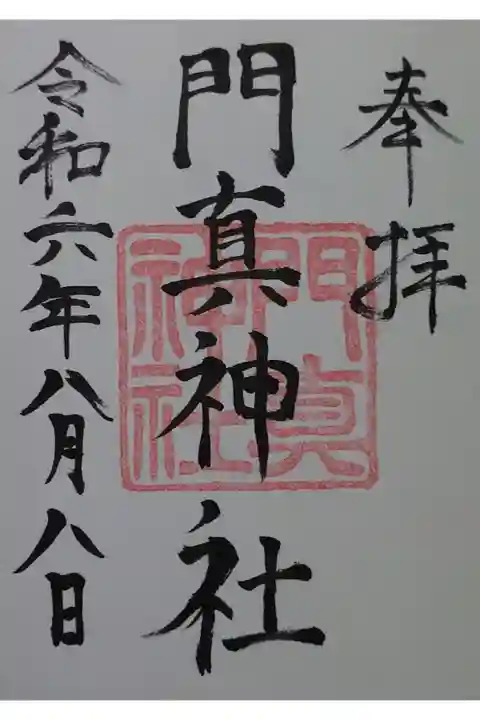 奉拝
門真神社
門真神社
令和六年八月八日